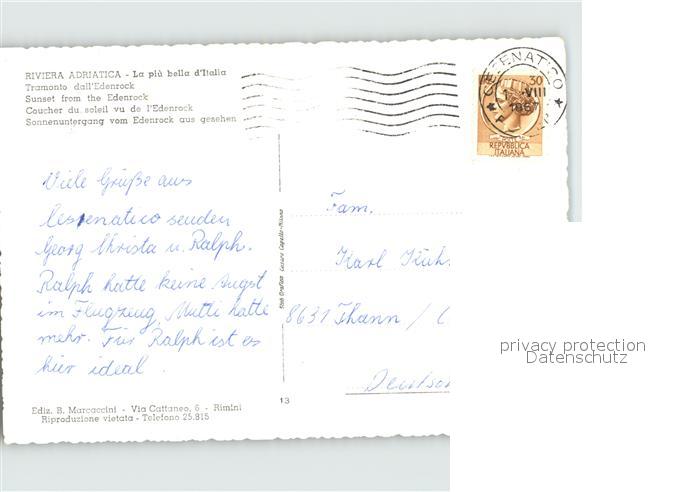 RIVIERA ADRIATICA - La più bella d'Italia
Tramonto dall'Edenrock
Sunset from the Edenrock
Coucher du soleil vu de l'Edenrock
Sonnenuntergang vom Edenrock aus gesehen
CESENATICO
VIII
30
REPVBBLICA
ITALIANA
Viele Grüße aus
Cesenatico senden
Georg Christa u. Ralph.
Ralph hatte keine Angst
im Flugzeug, Mutti hatte
mehr. Für Ralph ist es
hier ideal.
Fam.
Karl
8631 Thann /
Ediz. B. Marcaccini - Via Cattaneo, 6 - Rimini
Riproduzione vietata - Telefono 25.815
13
privacy protection
Datenschutz